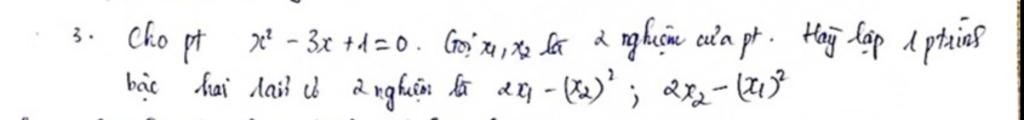 3. Cho pt x² - 3x + 1 = 0. Gọi x₁, x₂ là 2 nghiệm của pt. Hãy lập 1 ptrình
bậc hai có 2 nghiệm là 2x₁ - (x₂)² ; 2x₂ - (x₁)²